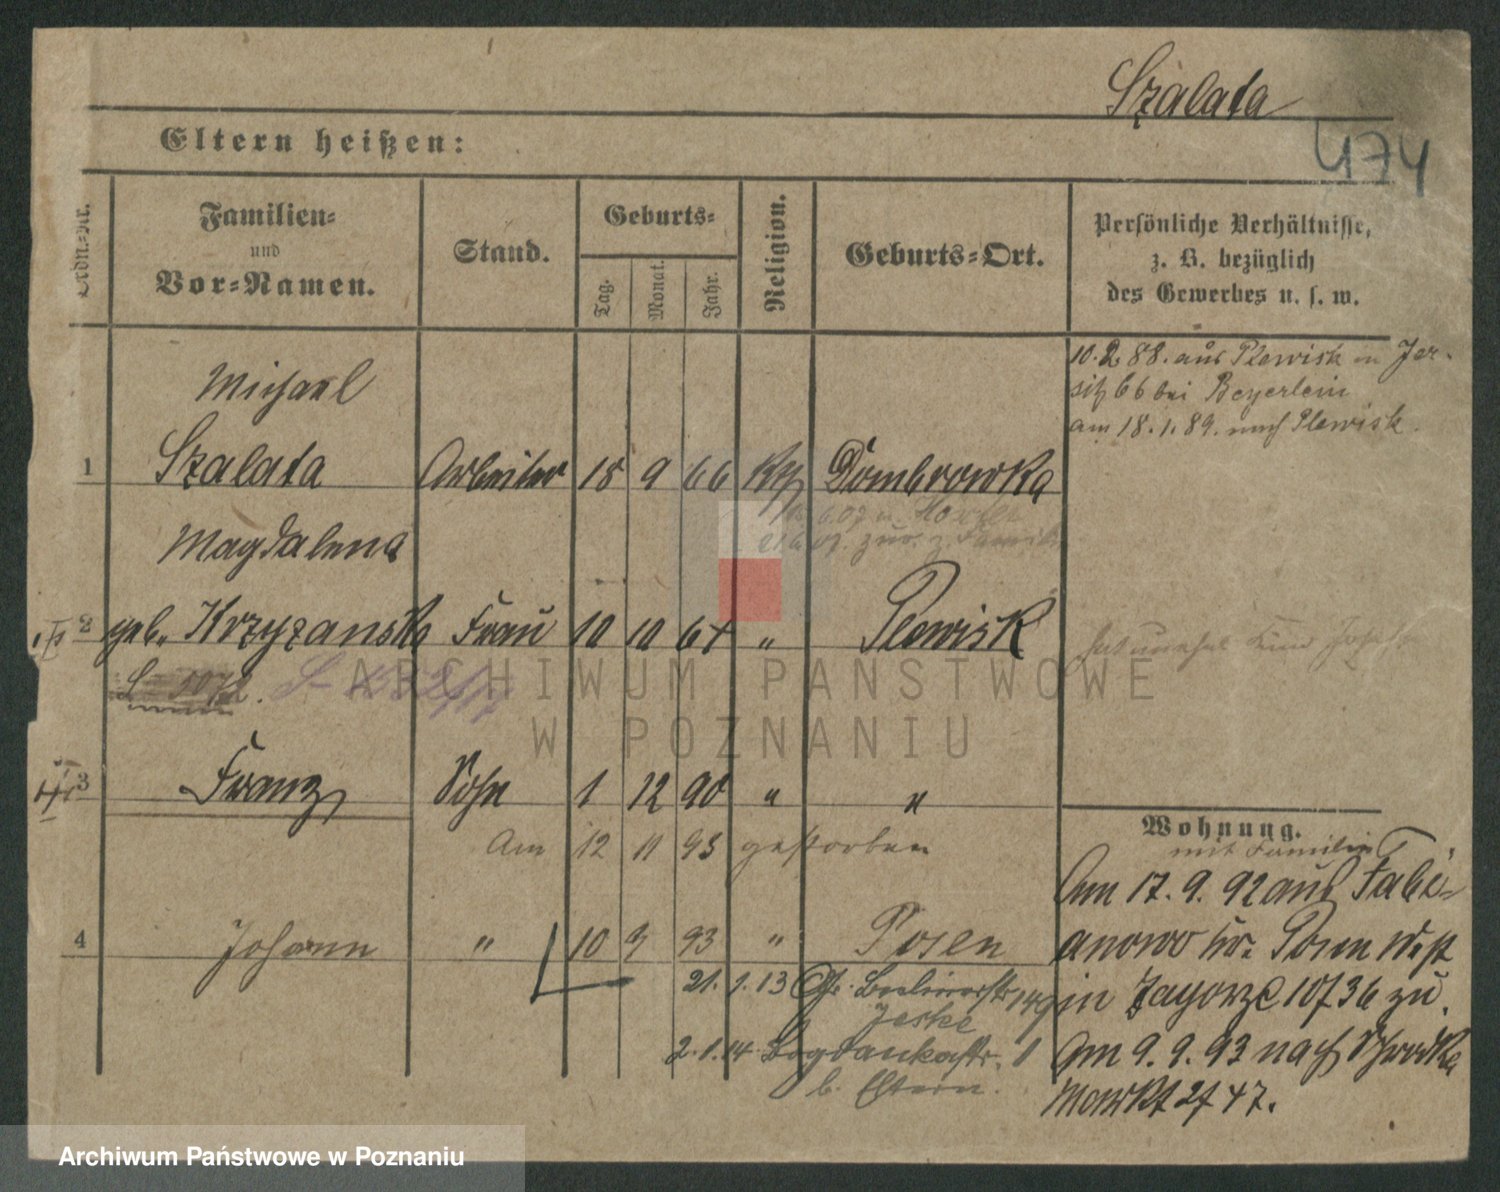 Szalata
474
Eltern heißen:
Ordn.-Nr.
Familien-
und
Vor-Namen.
Stand.
Geburts-
Tag.
Monat.
Jahr.
Religion.
Geburts-Ort.
Persönliche Verhältnisse,
z. B. bezüglich
des Gewerbes u. s. w.
10. 2. 88. aus Plewisk in Jer-
sitz 66 bei Beyerlein
am 18. 1. 89. nach Plewisk.
Michael
1 Szalata Arbeiter 18 9 66 kth Dombrowka
Magdalena
2 geb. Krzyzanska Frau 10 10 67 " Plewisk
3 Franz Sohn 1 12 90 " "
Am 12 11 93 gestorben
4 Johann " 10 9 93 " Posen
21. 1. 13 Gr. Berlinerstr 149
Jeske
2. 1. 14. Bogdankastr. 1
b. Eltern.
Wohnung.
mit Familie
Am 17. 9. 92 aus Fabi-
anowo Kr. Posen West
in Zagorze 10/36 zu.
Am 9. 9. 93 nach Schrodka
Markt 2/47.
ARCHIWUM PAŃSTWOWE
W POZNANIU
Archiwum Państwowe w Poznaniu